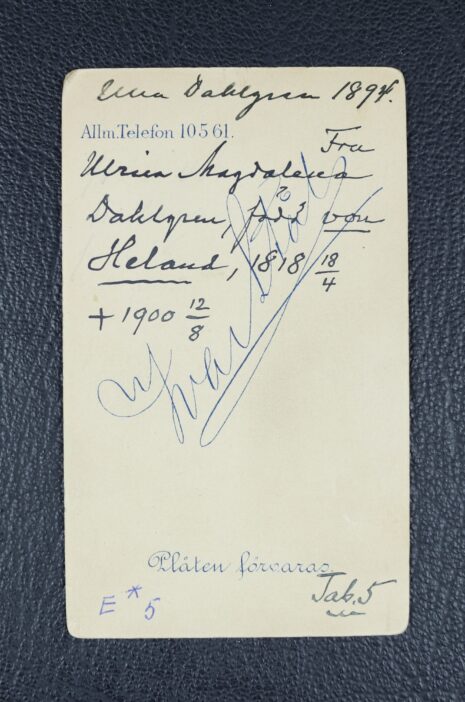 Ulla Dahlgren 1894.
Allm. Telefon 10561.
Fru
Ulrica Magdalena
Dahlgren, född von
Heland, 1818 18/4
+ 1900 12/8
Plåten förvaras.
E * 5
Tab. 5